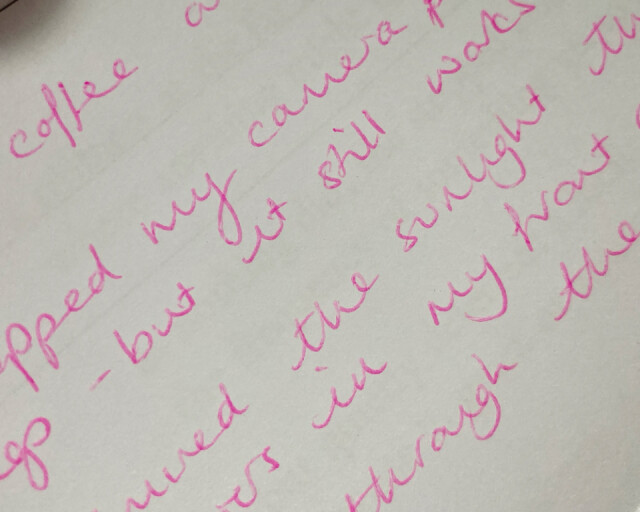 coffee a
pped my camera
ep - but it still works
the sunlight th
in my front
through the